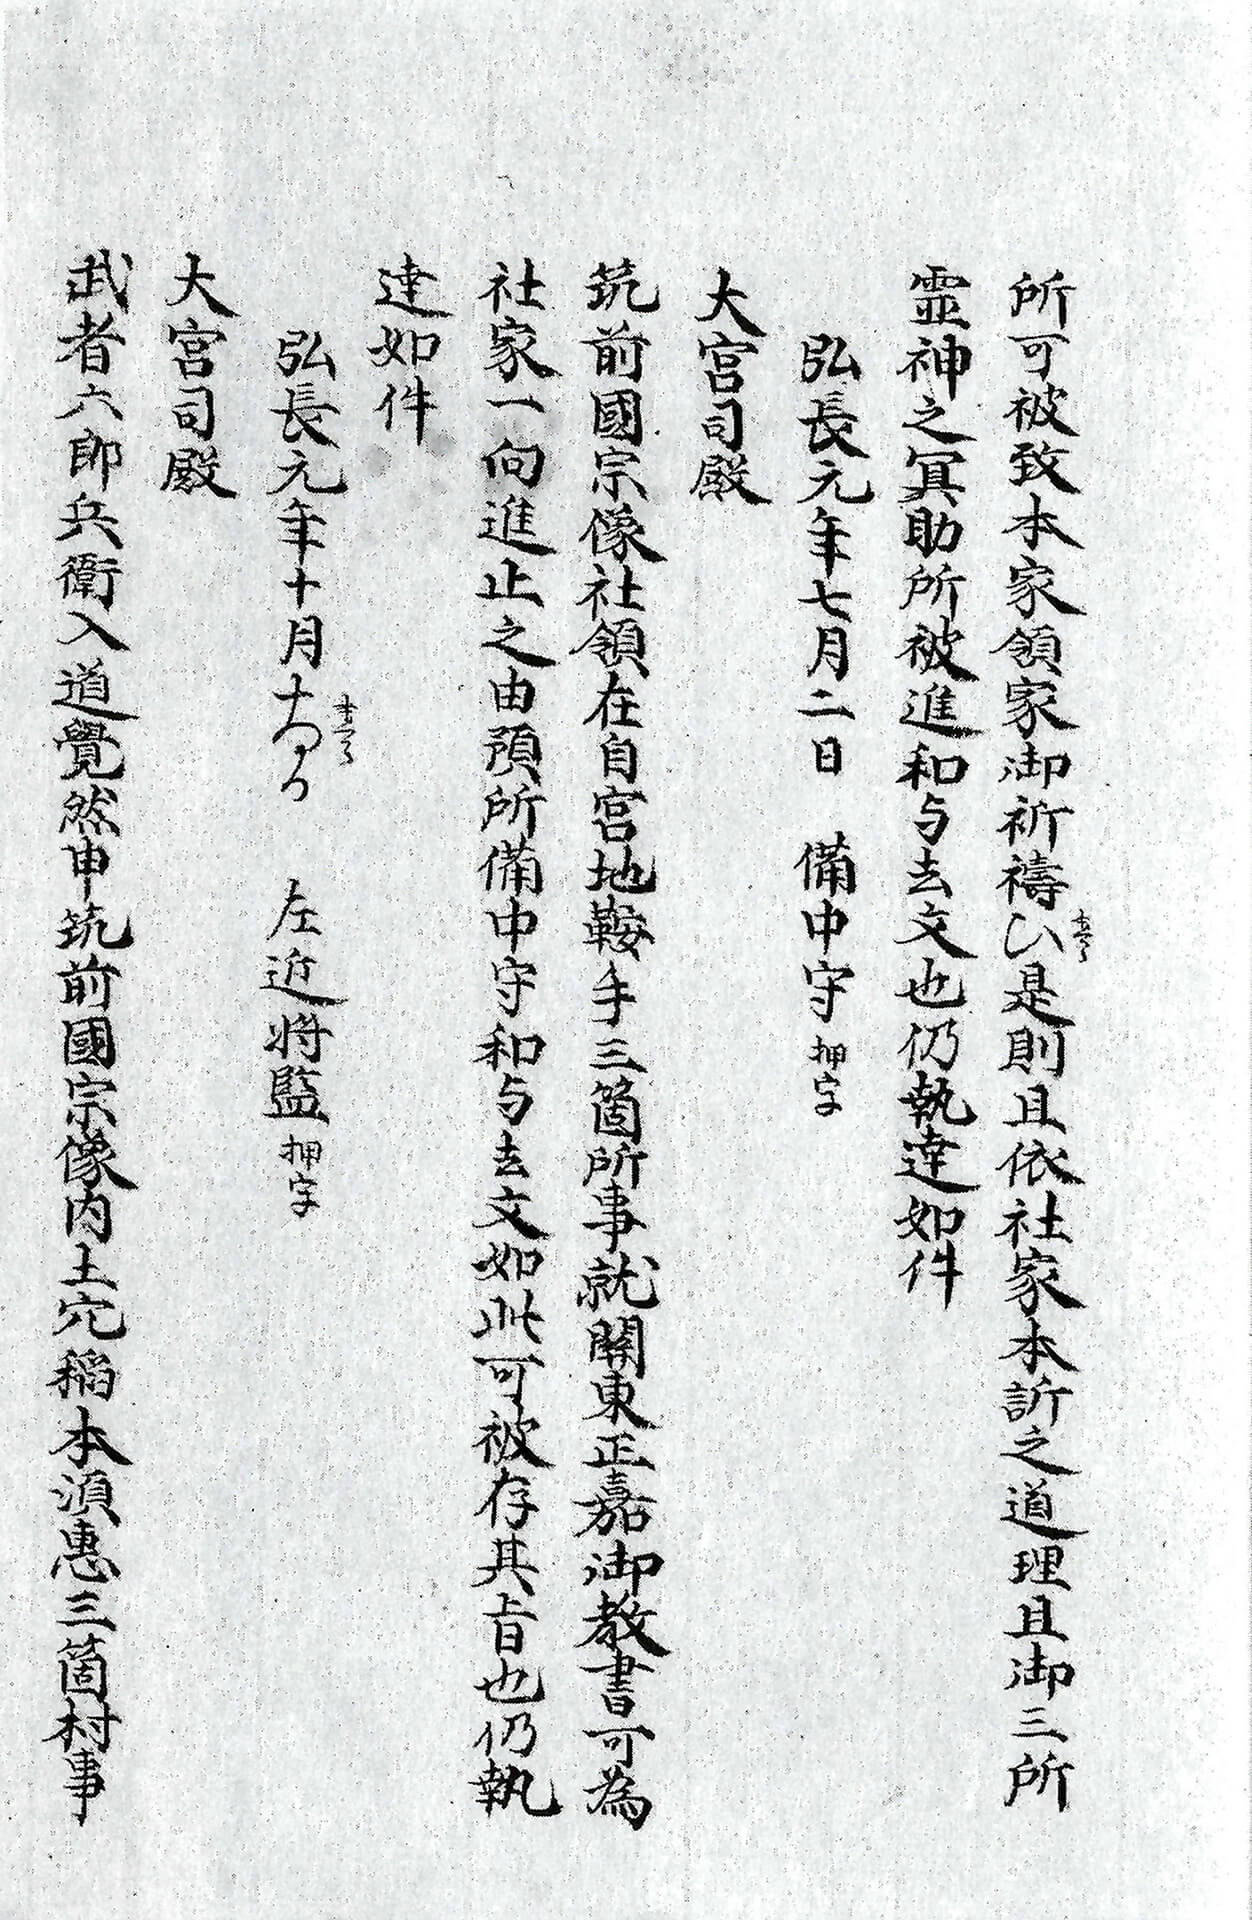 所可被致本家領家御祈禱是則且依社家本訴之道理且御三所
霊神之冥助所被進和与去文也仍執達如件
弘長元年七月二日 備中守押字
大宮司殿
筑前國宗像社領在自宮地鞍手三箇所事就關東正嘉御教書可為
社家一向進止之由預所備中守和与去文如此可被存其旨也仍執
達如件
弘長元年十月 左近将監押字
大宮司殿
武者六郎兵衛入道覺然申筑前國宗像内土穴稲本湏惠三箇村事